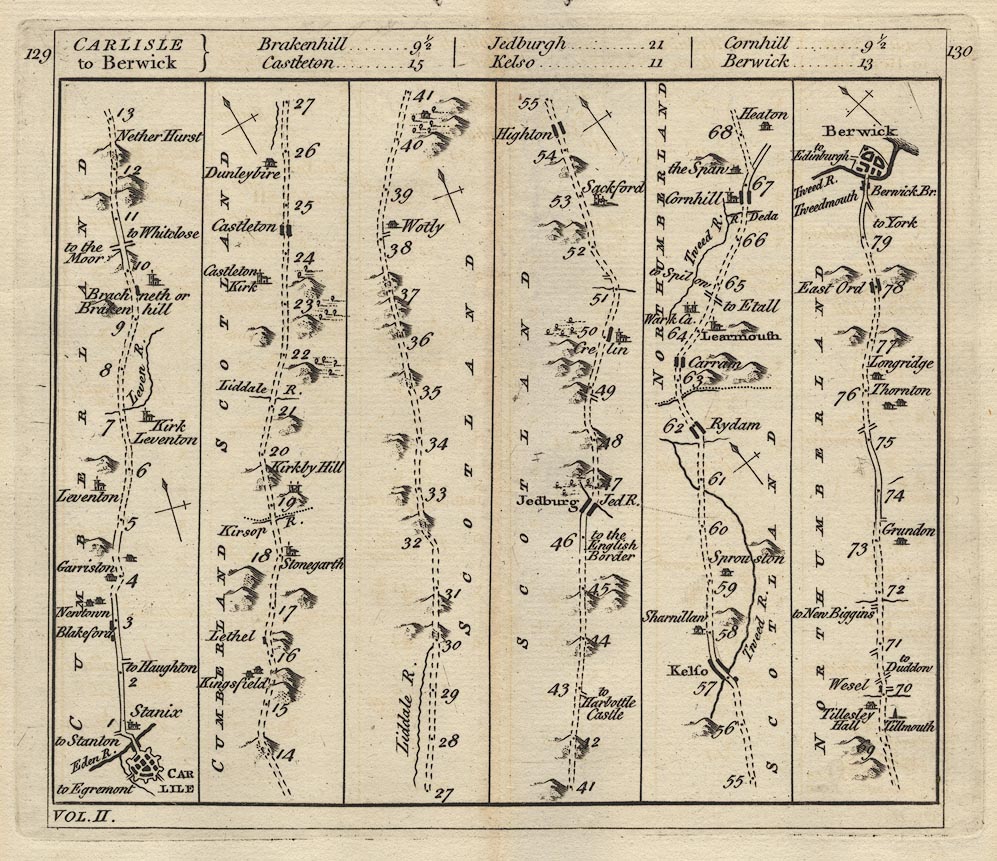 129
CARLISLE
to Berwick
Brakenhill ........ 9½
Castleton ......... 15
Jedburgh ............ 21
Kelso ................ 11
Cornhill ......... 9½
Berwick ......... 13
130
13
Nether Hurst
12
11
to Whitclose
to the
Moor
10
Brachneth or
Brakenhill
9
8
Leven R.
7
Kirk
Leventon
6
Leventon
5
Garriston
4
Newtown
3
Blakeford
to Haughton
2
1
Stanix
to Stanton
Eden R.
CAR
LILE
to Egremont
CUMBERLAND
27
26
Dunleybire
25
Castleton
24
Castleton
Kirk
23
22
Liddale R.
21
20
Kirkby Hill
19
Kirsop R.
18
Stonegarth
17
Lethel
16
Kingsfield
15
14
CUMBERLAND
SCOTLAND
41
40
39
Wotly
38
37
36
35
34
33
32
31
30
29
Liddale R.
28
27
SCOTLAND
55
Highton
54
Sackford
53
52
51
50
Crelin
49
48
47
Jedburg
Jed R.
46
to the
English
Border
45
44
43
to
Harbottle
Castle
42
41
SCOTLAND
NORTHUMBERLAND
Heaton
68
the Span
67
Cornhill
R. Deda
66
Tweed R.
65
to Etall
Wark Ca.
64
Learmouth
Carram
63
62
Rydam
61
60
Sprouston
59
Sharnillan
58
Tweed R.
Kelso
57
56
55
SCOTLAND
Berwick
to
Edinburgh
Tweed R.
Berwick Br.
Tweedmouth
to York
79
East Ord
78
77
Longridge
76
Thornton
75
74
Grundon
73
72
to New Biggins
71
to
Duddon
Wesel
70
Tillesley
Hall
Tillmouth
69
NORTHUMBERLAND
VOL. II.